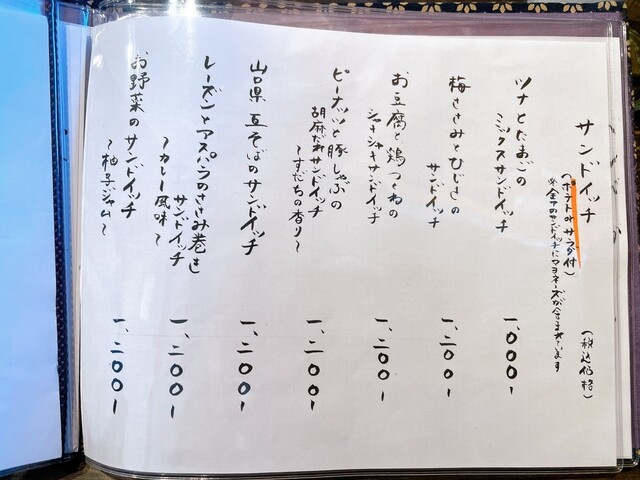 サンドイッチ
(ポテトorサラダ付)
(税込価格)
※全てのサンドイッチにマヨネーズが含まれています
ツナとたまごの
ミックスサンドイッチ
一、〇〇〇-
梅ささみとひじきの
サンドイッチ
一、二〇〇-
お豆腐と鶏つくねの
シャキシャキサンドイッチ
一、二〇〇-
ピーナッツと豚しゃぶの
胡麻だれサンドイッチ
~すだちの香り~
一、二〇〇-
山口県瓦そばのサンドイッチ
一、二〇〇-
レーズンとアスパラのささみ巻き
サンドイッチ
~カレー風味~
一、二〇〇-
お野菜のサンドイッチ
~柚子ジャム~
一、二〇〇-